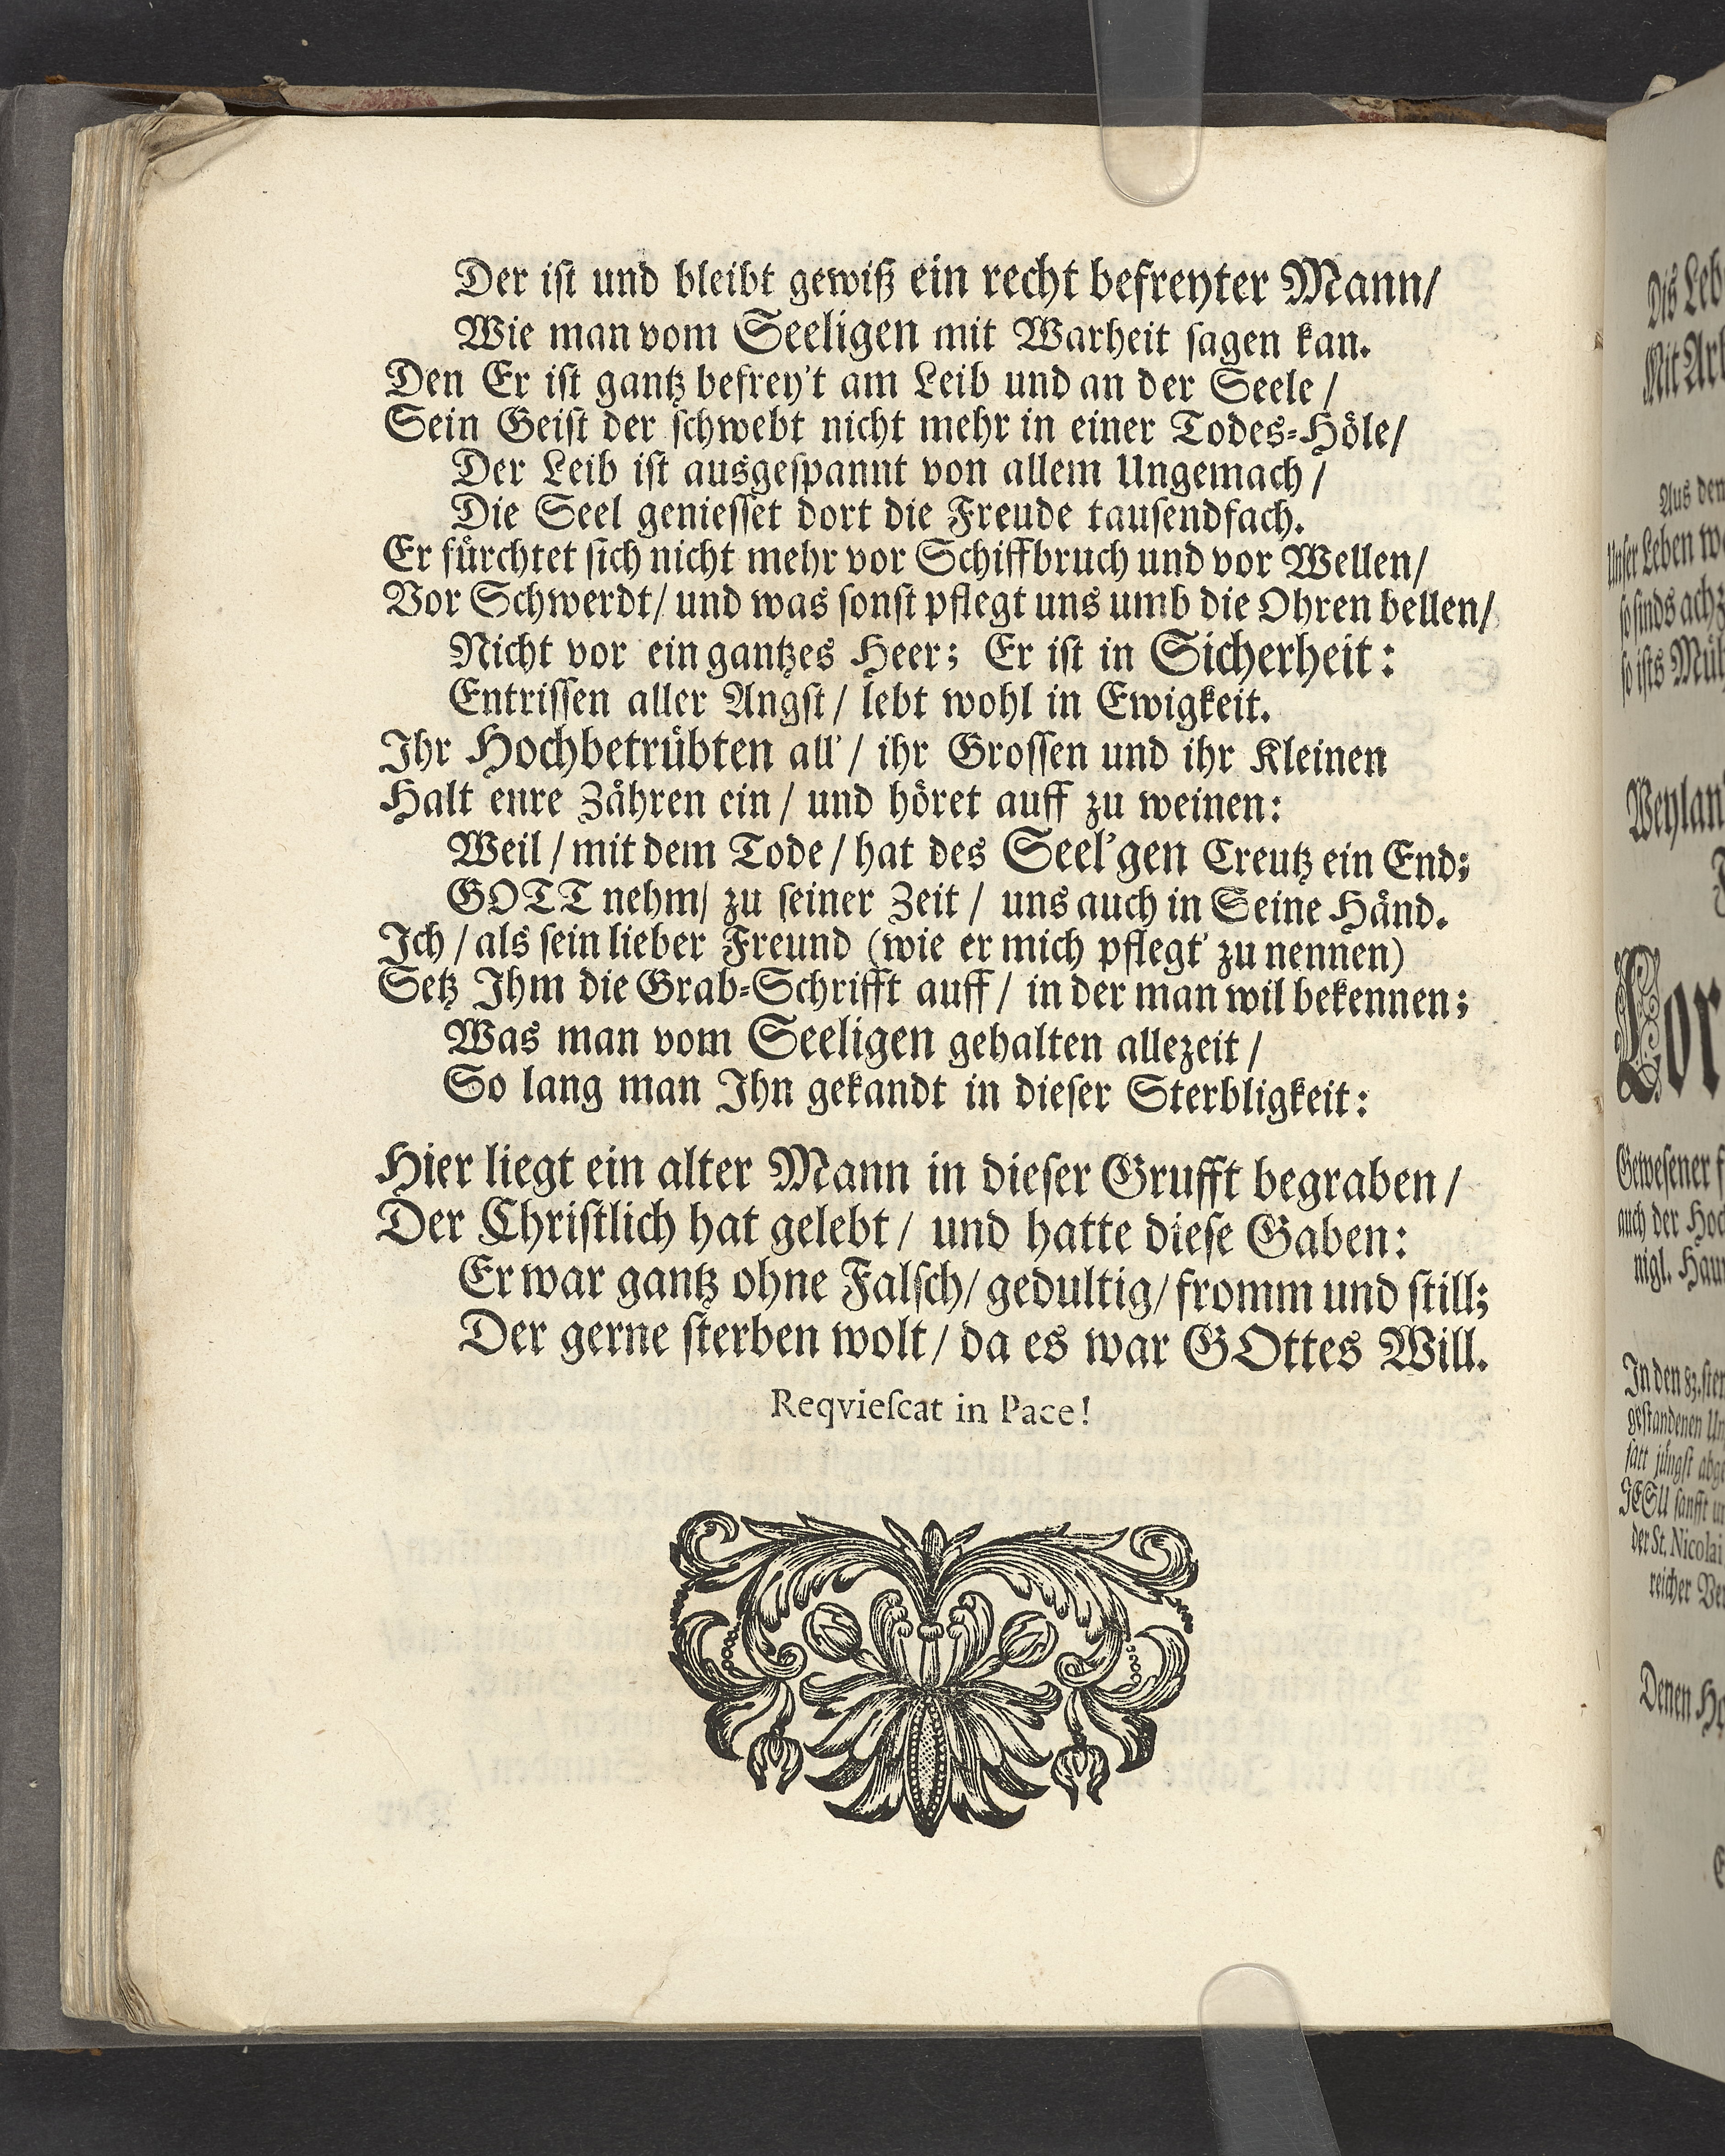 Der iſt und bleibt gewiß ein recht befreyter Mann/
Wie man vom Seeligen mit Warheit ſagen kan.
Den Er iſt gantz befrey't am Leib und an der Seele /
Sein Geiſt der ſchwebt nicht mehr in einer Todes-Hoͤle/
Der Leib iſt ausgeſpannt von allem Ungemach /
Die Seel genieſſet dort die Freude tauſendfach.
Er fuͤrchtet ſich nicht mehr vor Schiffbruch und vor Wellen/
Vor Schwerdt/ und was ſonſt pflegt uns umb die Ohren bellen/
Nicht vor ein gantzes Heer; Er iſt in Sicherheit:
Entriſſen aller Angſt / lebt wohl in Ewigkeit.
Ihr Hochbetruͤbten all' / ihr Groſſen und ihr Kleinen
Halt eure Zaͤhren ein / und hoͤret auff zu weinen:
Weil / mit dem Tode / hat des Seel'gen Creutz ein End;
GOTT nehm/ zu ſeiner Zeit / uns auch in Seine Haͤnd.
Ich / als ſein lieber Freund (wie er mich pflegt' zu nennen)
Setz Ihm die Grab-Schrifft auff / in der man wil bekennen;
Was man vom Seeligen gehalten allezeit /
So lang man Ihn gekandt in dieſer Sterbligkeit:
Hier liegt ein alter Mann in dieſer Grufft begraben /
Der Chriſtlich hat gelebt / und hatte dieſe Gaben:
Er war gantz ohne Falſch/ gedultig/ fromm und ſtill;
Der gerne ſterben wolt / da es war GOttes Will.
Reqvieſcat in Pace!
Aus den
Unſer Leben
In den 83.
der St. Nicolai
Denen